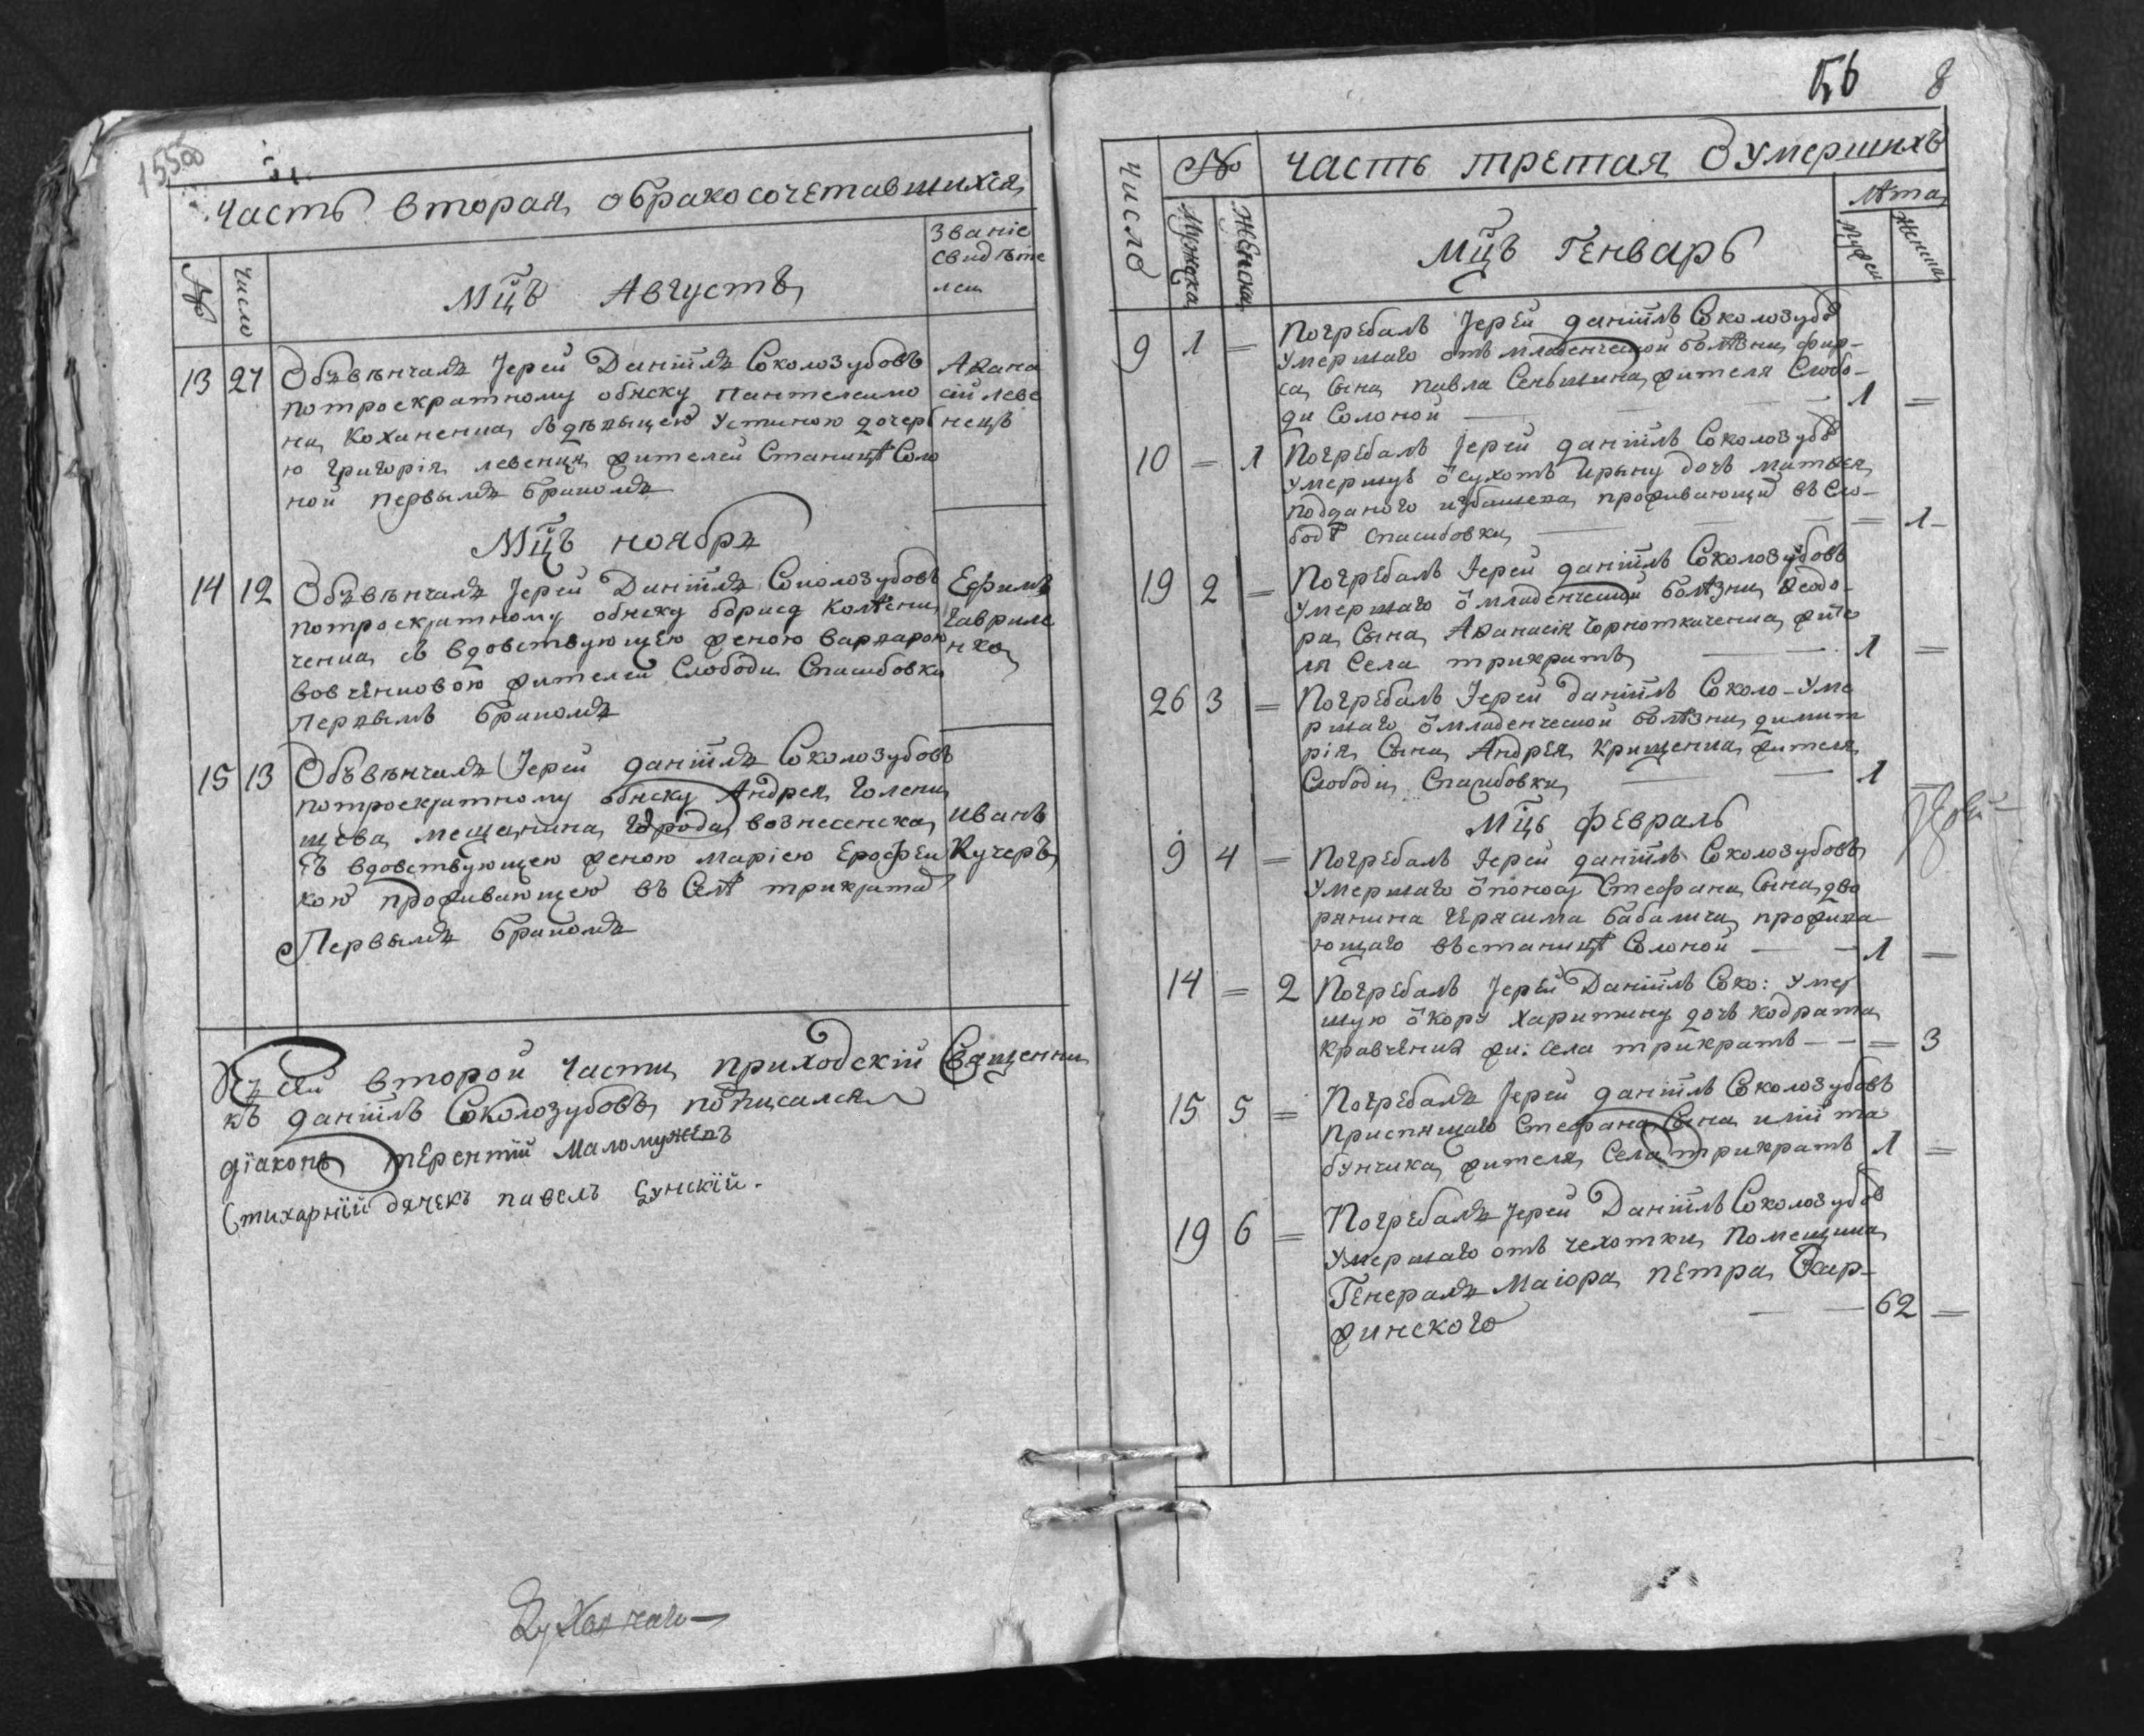 15500
часть вторая обракосочетавшихся
№
Число
Мцъ Августъ
Званіе
свидѣте
леи
13 27 Обвѣнчалъ Іереи Даніилъ Соколозубовъ
потроекратному обиску Пантелеимо
на Коханенка, съ дѣвыцею Устиною дочер
ю Григорія левенця жителей Станицѣ Соло
ной первымъ бракомъ
Аѳана
сій леве
нецъ
Мцъ ноябръ
14 12 Обвѣнчалъ Іереи Даніилъ Соколозубовъ
потроекратному обиску бориса Колѣсни
ченка, съ вдовствующею женою варварою
вовченковою жителеи Слободи Спасибовки
первымъ бракомъ
Ефимъ
Гавриле
нко
15 13 Обвѣнчалъ Іереи даніилъ Соколозубовъ
потроекратному обиску Андрея Голени
щева мещанина города вознесенска
съ вдовствующею женою маріею Ерофеи
кою проживающею въ Селѣ трикратах
Первымъ бракомъ
иванъ
Кучеръ
Къ сей второй части приходскій Священни
къ даніилъ Соколозубовъ подписался
діаконъ терентій Маломужевъ
Стихарній дячекъ павелъ
56 8
Число
№
Мужеска
Женска
часть третая О умершихъ
Лѣта
Мужеи
Женска
Мцъ Генварь
9 1 = Погребалъ Іерей даніилъ Соколозубов
умершаго отъ младенческой болѣзни фир-
са Сына павла Сенъшина жителя Слобо-
ди Солоной — — — 1 =
10 = 1 Погребалъ Іерей даніилъ Соколозубов
умершую ѿ сухотъ Ирыну дочь матвея
подданого проживающей въ Сло-
бодѣ спасибовки — — = 1
19 2 = Погребалъ Іерей даніилъ Соколозубовъ
умершаго ѿ младенческой болѣзни Ѳеодо-
ра Сына Аѳанасія Чорноткаченка, жите
ля Села трикратъ — — 1 =
26 3 = Погребалъ Іерей даніилъ Соколо-уме
ршаго ѿ младенческой болѣзни димит
рія Сына Андрея Крищенка жителя
Слободи Спасибовки — — 1 =
Мцъ февраль
9 4 = Погребалъ Іерей даніилъ Соколозубовъ
умершаго ѿ поноса Стефана Сына дво
рянина Герасима бабалича прожива
ющаго въ станицѣ Солоной — — 1 =
14 = 2 Погребалъ Іерей Даніилъ Соко: умер
шую ѿ кору харитину дочь кодрата
кравченка жи: села трикратъ — — = 3
15 5 = Погребалъ Іерей даніилъ Соколозубовъ
приспящаго Стефана Сына иліи та
бунчика жителя Села трикратъ 1 =
19 6 = Погребалъ Іерей Даніилъ Соколозубов
умершаго отъ чехотки, Помещика
Генералъ Маіора, петра Скар-
жинского — — 62 =